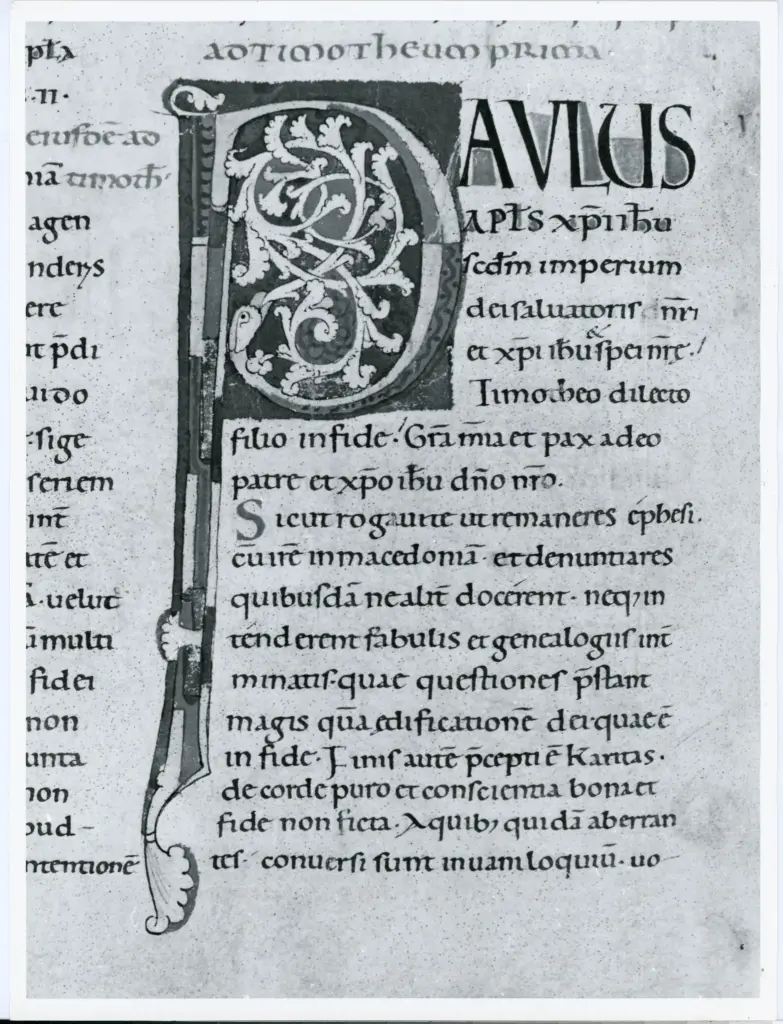 pl̄a
·II·
eiusdē ad
mā timoth
agen
nders
ere
nt p̄di
uido
sige
seriem
int̄
atē et
ā·uelut
ā multi
fidei
non
unta
non
pud
ntentionē
AD TIMOTHEUM PRIMA
PAVLUS
APL̄S xp̄i ih̄u
scd̄m imperium
dei saluatoris nr̄i
et xp̄i ih̄u & spei nr̄e·
Timotheo dilecto
filio in fide· Gr̄a mīa et pax a deo
patre et xp̄o ih̄u dn̄o nr̄o.
Sicut rogaui te ut remaneres ephesi.
cū irē in macedoniā· et denuntiares
quibusdā ne alit̄ docerent· neq; in
tenderent fabulis et genealogiis int̄
minatis· quae questiones p̄stant
magis quā ędificationē dei· quae ē
in fide· Finis autē p̄cepti ē Karitas·
de corde puro et conscientia bona et
fide non ficta· A quib; quidā aberran
tes· conuersi sunt in uaniloquiū· uo